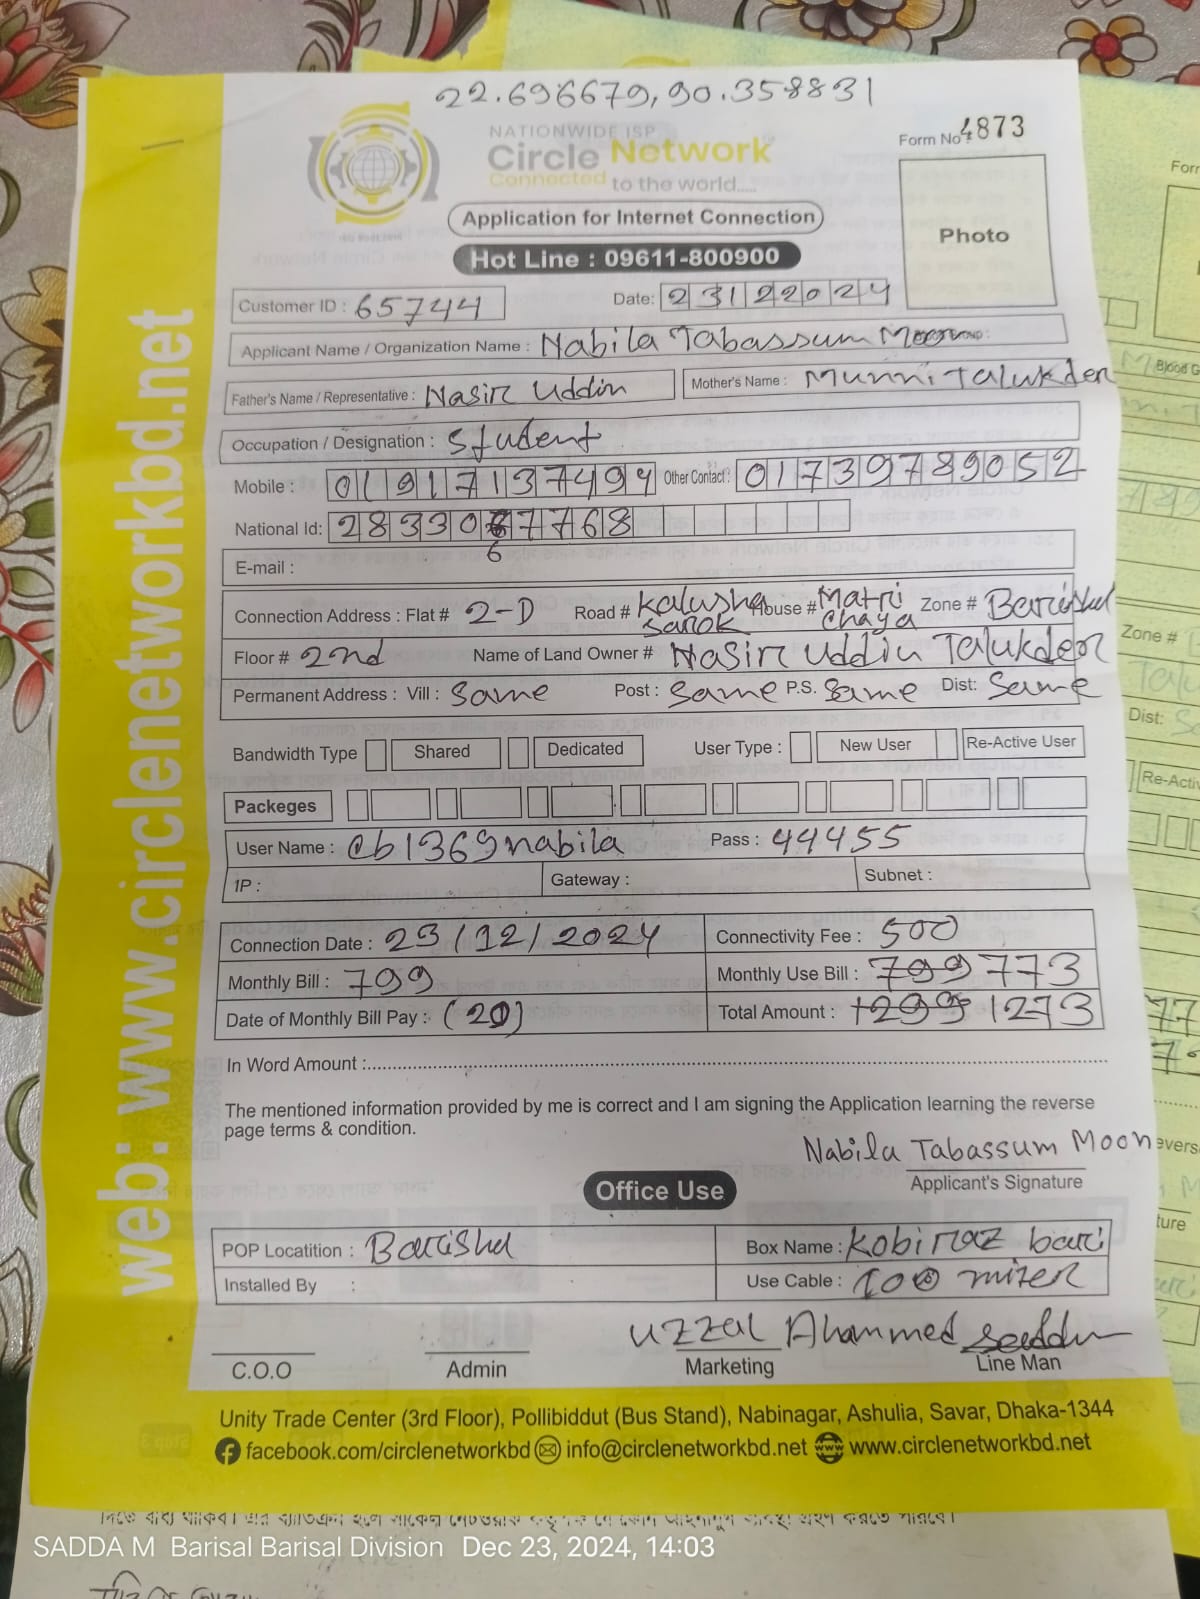 22.696679, 90.358831
NATIONWIDE ISP
Circle Network
Connected to the world.....
Form No: 4873
Photo
Application for Internet Connection
Hot Line : 09611-800900
Customer ID : 65744 Date: 23122024
Applicant Name / Organization Name : Nabila Tabassum Moon
Father's Name / Representative : Nasir Uddin Mother's Name : Munni Talukder
Occupation / Designation : Student
Mobile : 01917137494 Other Contact : 01739789052
National Id: 2833067768
6
E-mail :
Connection Address : Flat # 2-D Road # Kalusha Sarok House # Matri Chaya Zone # Barishal
Floor # 2nd Name of Land Owner # Nasir Uddin Talukder
Permanent Address : Vill : Same Post : Same P.S. Same Dist: Same
Bandwidth Type Shared Dedicated User Type : New User Re-Active User
Packeges
User Name : cb1369nabila Pass : 44455
IP : Gateway : Subnet :
Connection Date : 23/12/2024 Connectivity Fee : 500
Monthly Bill : 799 Monthly Use Bill : 799 773
Date of Monthly Bill Pay : (20) Total Amount : 1299 1273
In Word Amount :
The mentioned information provided by me is correct and I am signing the Application learning the reverse
page terms & condition.
Nabila Tabassum Moon
Applicant's Signature
Office Use
POP Locatition : Barishal Box Name : Kobiraz bari
Installed By : Use Cable : 100 miter
Uzzal Ahammed
C.O.O Admin Marketing Line Man
Unity Trade Center (3rd Floor), Pollibiddut (Bus Stand), Nabinagar, Ashulia, Savar, Dhaka-1344
facebook.com/circlenetworkbd info@circlenetworkbd.net www.circlenetworkbd.net
web: www.circlenetworkbd.net
SADDA M Barisal Barisal Division Dec 23, 2024, 14:03
Blood G
Zone #
Dist:
Re-Activ